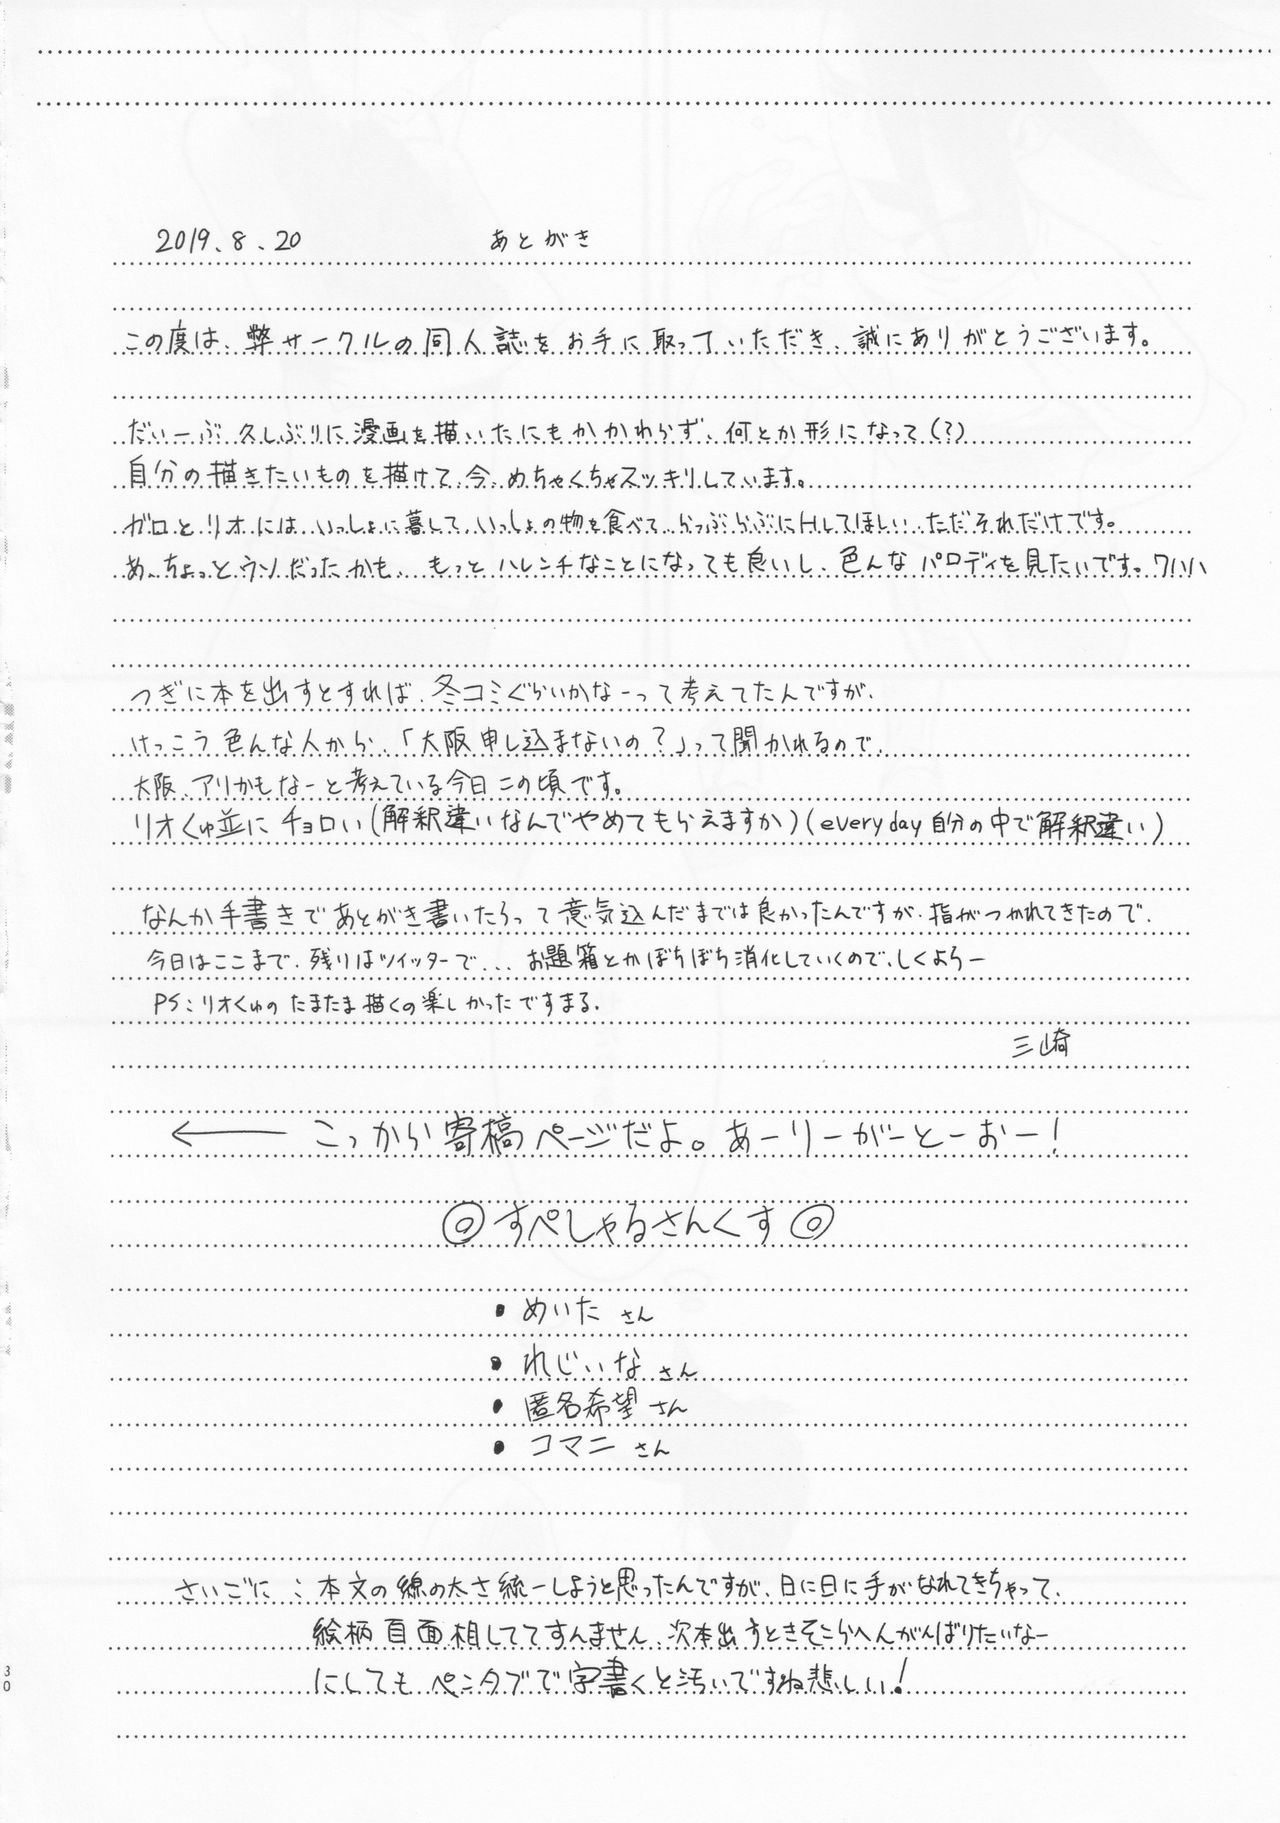 2019.8.20 あとがき
この度は、弊サークルの同人誌をお手に取っていただき、誠にありがとうございます。
だいーぶ久しぶりに漫画を描いたにもかかわらず、何とか形になって(?)
自分の描きたいものを描けて、今、めちゃくちゃスッキリしています。
ガロとリオには、いっしょに暮して、いっしょの物を食べて、らっぶらぶにHしてほしい、ただそれだけです。
あ、ちょっとウソだったかも、もっとハレンチなことになっても良いし、色んなパロディを見たいです。ワハハ
つぎに本を出すとすれば、冬コミぐらいかなーって考えてたんですが、
けっこう色んな人から、「大阪申し込まないの?」って聞かれるので、
大阪、アリかもなーと考えている今日この頃です。
リオくゅ並にチョロい(解釈違いなんでやめてもらえますか)(everyday自分の中で解釈違い)
なんか手書きであとがき書いたろって意気込んだまでは良かったんですが、指がつかれてきたので、
今日はここまで、残りはツイッターで... お題箱とかぼちぼち消化していくので、しくよろー
PS:リオくゅのたまたま描くの楽しかったですまる。
三崎
← こっから寄稿ページだよ。あーりーがーとーおー!
◎すぺしゃるさんくす◎
• めいたさん
• れじぃなさん
• 匿名希望さん
• コマニさん
さいごに:本文の線の太さ統一しようと思ったんですが、日に日に手がなれてきちゃって、
絵柄百面相しててすんません、次本出すときそこらへんがんばりたいなー
にしてもペンタブで字書くと汚いですね悲しい!
30